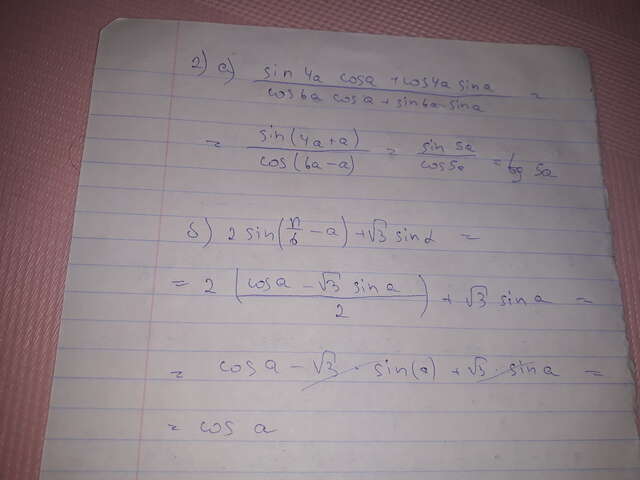 2) а) (sin 4a cos a + cos 4a sin a)/(cos 6a cos a + sin 6a · sin a) =
= sin(4a+a)/cos(6a−a) = sin 5a/cos 5a = tg 5a
б) 2 sin(π/6 − a) + √3 sin α =
= 2 ((cos a − √3 sin a)/2) + √3 sin a =
= cos a − √3 · sin(a) + √3 · sin a =
= cos a